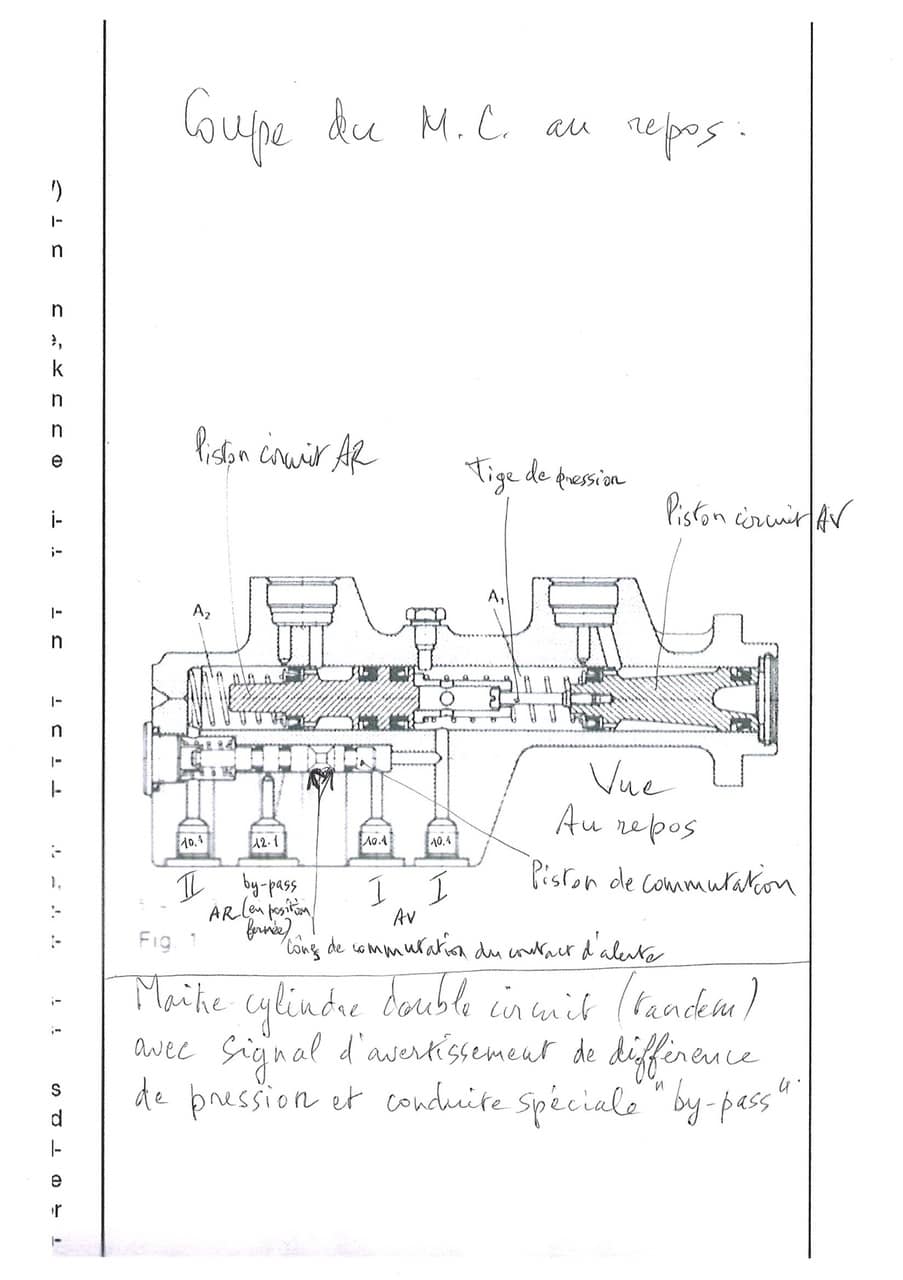 Coupe du M. C. au repos :
')
I-
n
n
e,
k
n
n
e
i-
i-
I-
n
I-
n
I-
I-
Piston circuit AR
Tige de pression
Piston circuit AV
A2
A1
Vue
Au repos
10.1 12.1 10.1 10.1
Piston de commutation
II by-pass I I
AR (en position AV
fermée)
Fig. 1
Cônes de commutation du contact d'alerte
Maître-cylindre double circuit (tandem)
avec signal d'avertissement de différence
de pression et conduite spéciale "by-pass".
s
d
I-
e
r